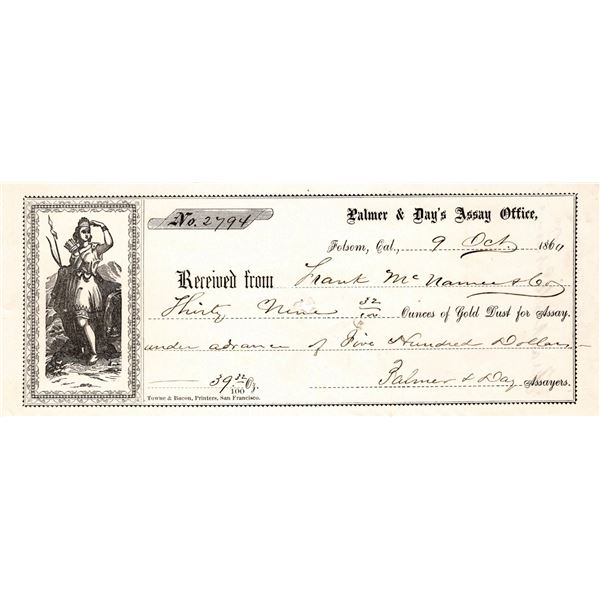 No. 2794
Palmer & Day's Assay Office,
Folsom, Cal., 9 Oct. 1860
Received from Frank McNamee & Co
Thirty Nine 32/100 Ounces of Gold Dust for Assay.
under advance of Five Hundred Dollars
39 32/100 Oz. Palmer & Day Assayers.
Towne & Bacon, Printers, San Francisco.